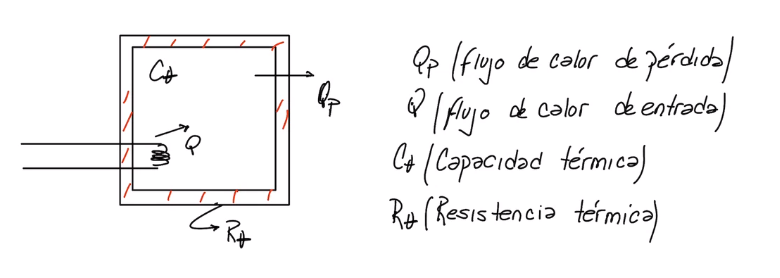 Cθ
Qp
Q
Rθ
Qp (flujo de calor de pérdida)
Q (flujo de calor de entrada)
Cθ (Capacidad térmica)
Rθ (Resistencia térmica)